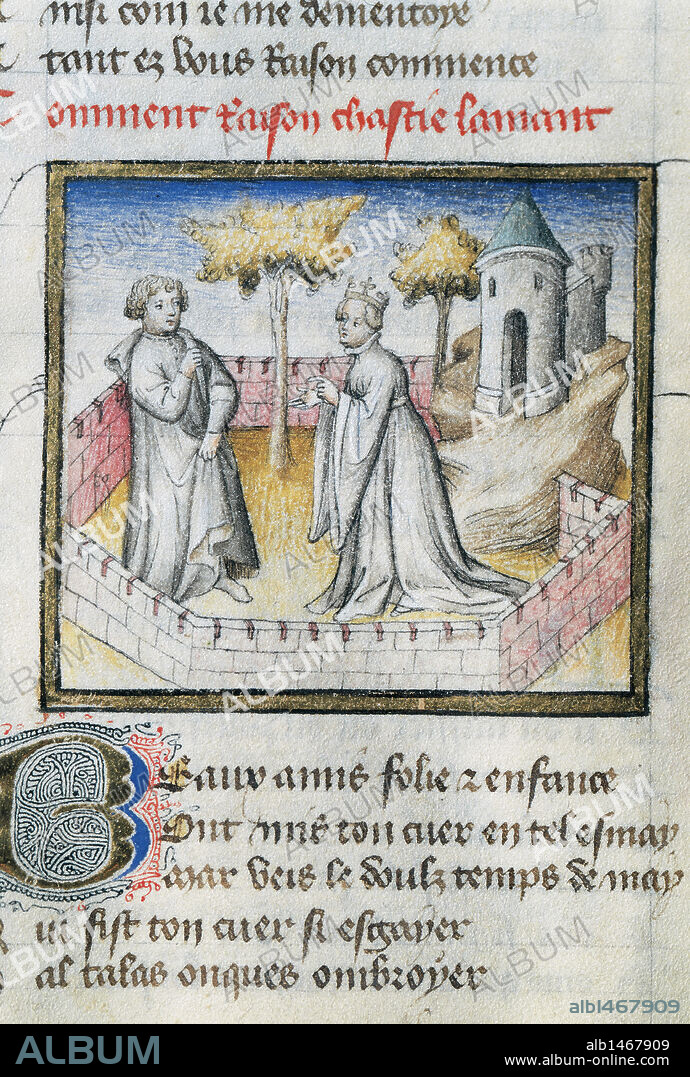 nsi com ie me dementoye
tant ez vous Raison commence
Comment Raison chastie lamant
Beaux amis folie & enfance
Dont mis ton cuer en tel esmay
Mar veis le doulz temps de may
ui fist ton cuer si esgayer
al talas onques ombroyer
ALBUM
alb1467909
ALBUM
alb1467909
www.album-online.com